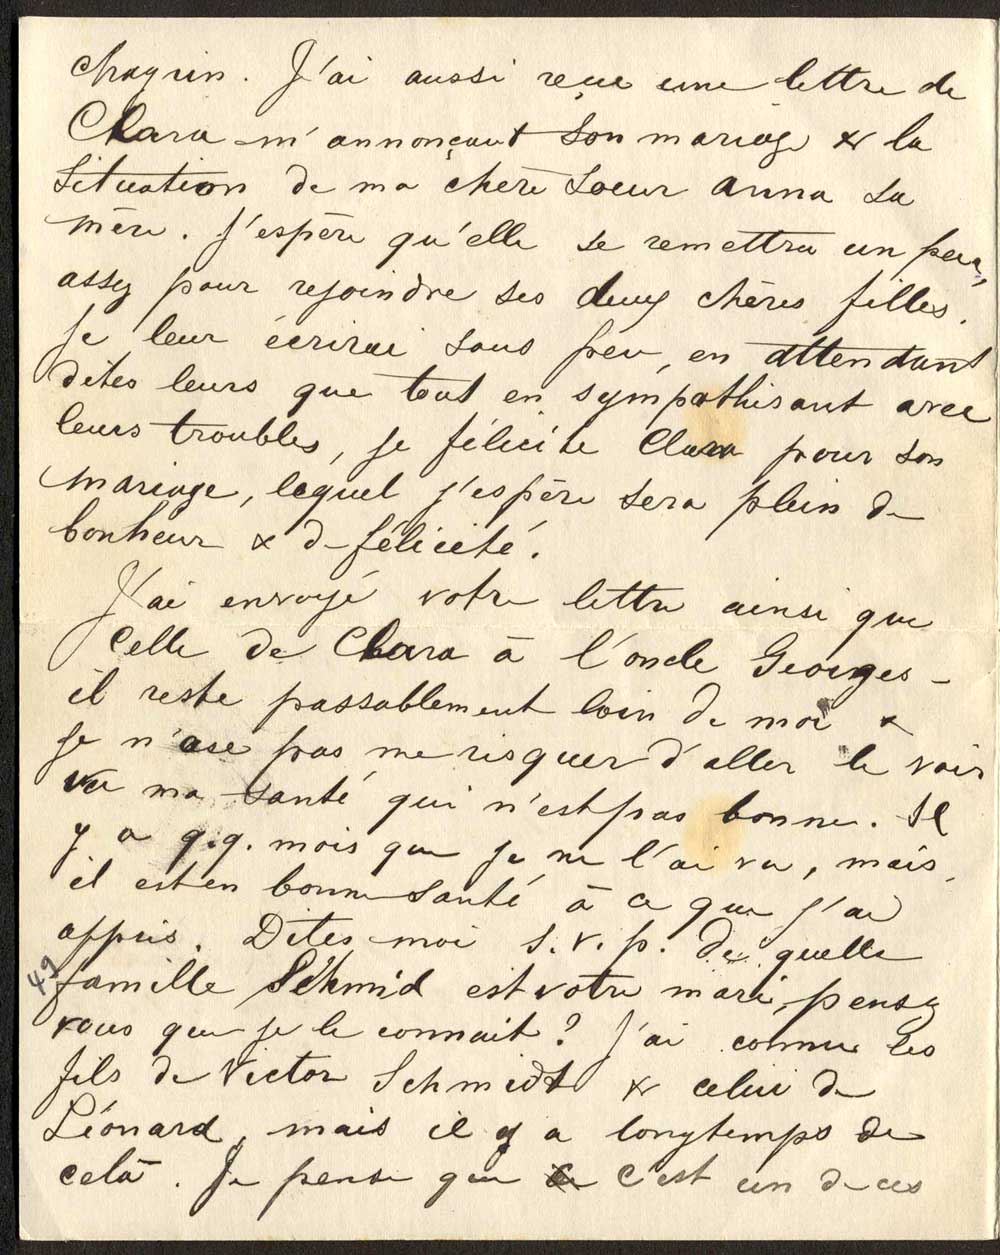 chagrin. J'ai aussi reçue une lettre de
Clara m'annonçant son mariage & la
situation de ma chère soeur Anna sa
mère. J'espère qu'elle se remettra un peu,
assez pour rejoindre ses deux chères filles.
Je leur écrirai sous peu, en attendant
dites leurs que tout en sympathisant avec
leurs troubles, je félicite Clara pour son
mariage, lequel j'espère sera plein de
bonheur & de félicité.
J'ai envoyé votre lettre ainsi que
celle de Clara à l'oncle Georges -
il reste passablement loin de moi &
je n'ose pas me risquer d'aller le voir
vu ma santé qui n'est pas bonne. Il
y a q.q. mois que je ne l'ai vu, mais
il est en bonne santé à ce que j'ai
appris. Dites moi s.v.p. de quelle
49
famille Schmid est votre mari, pensez
vous que je le connait? J'ai connu les
fils de Victor Schmidt & celui de
Léonard, mais il y a longtemps de
celà. Je pense que c'est un de ces